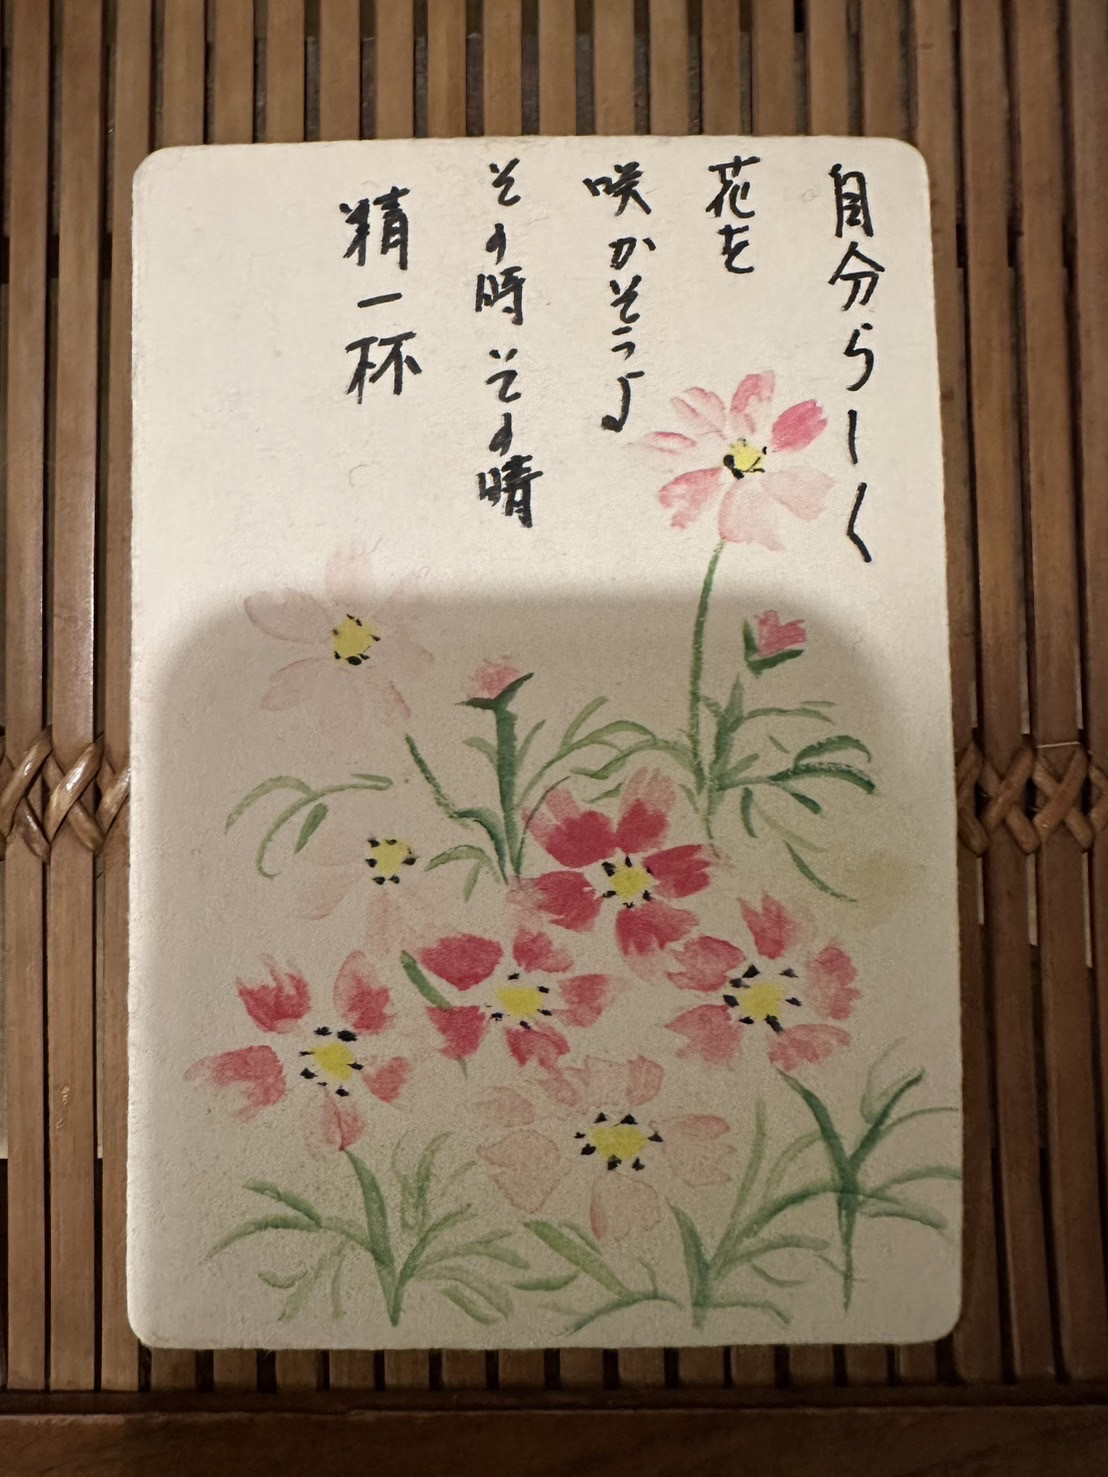 自分らしく
花を
咲かそうよ
その時その晴
精一杯